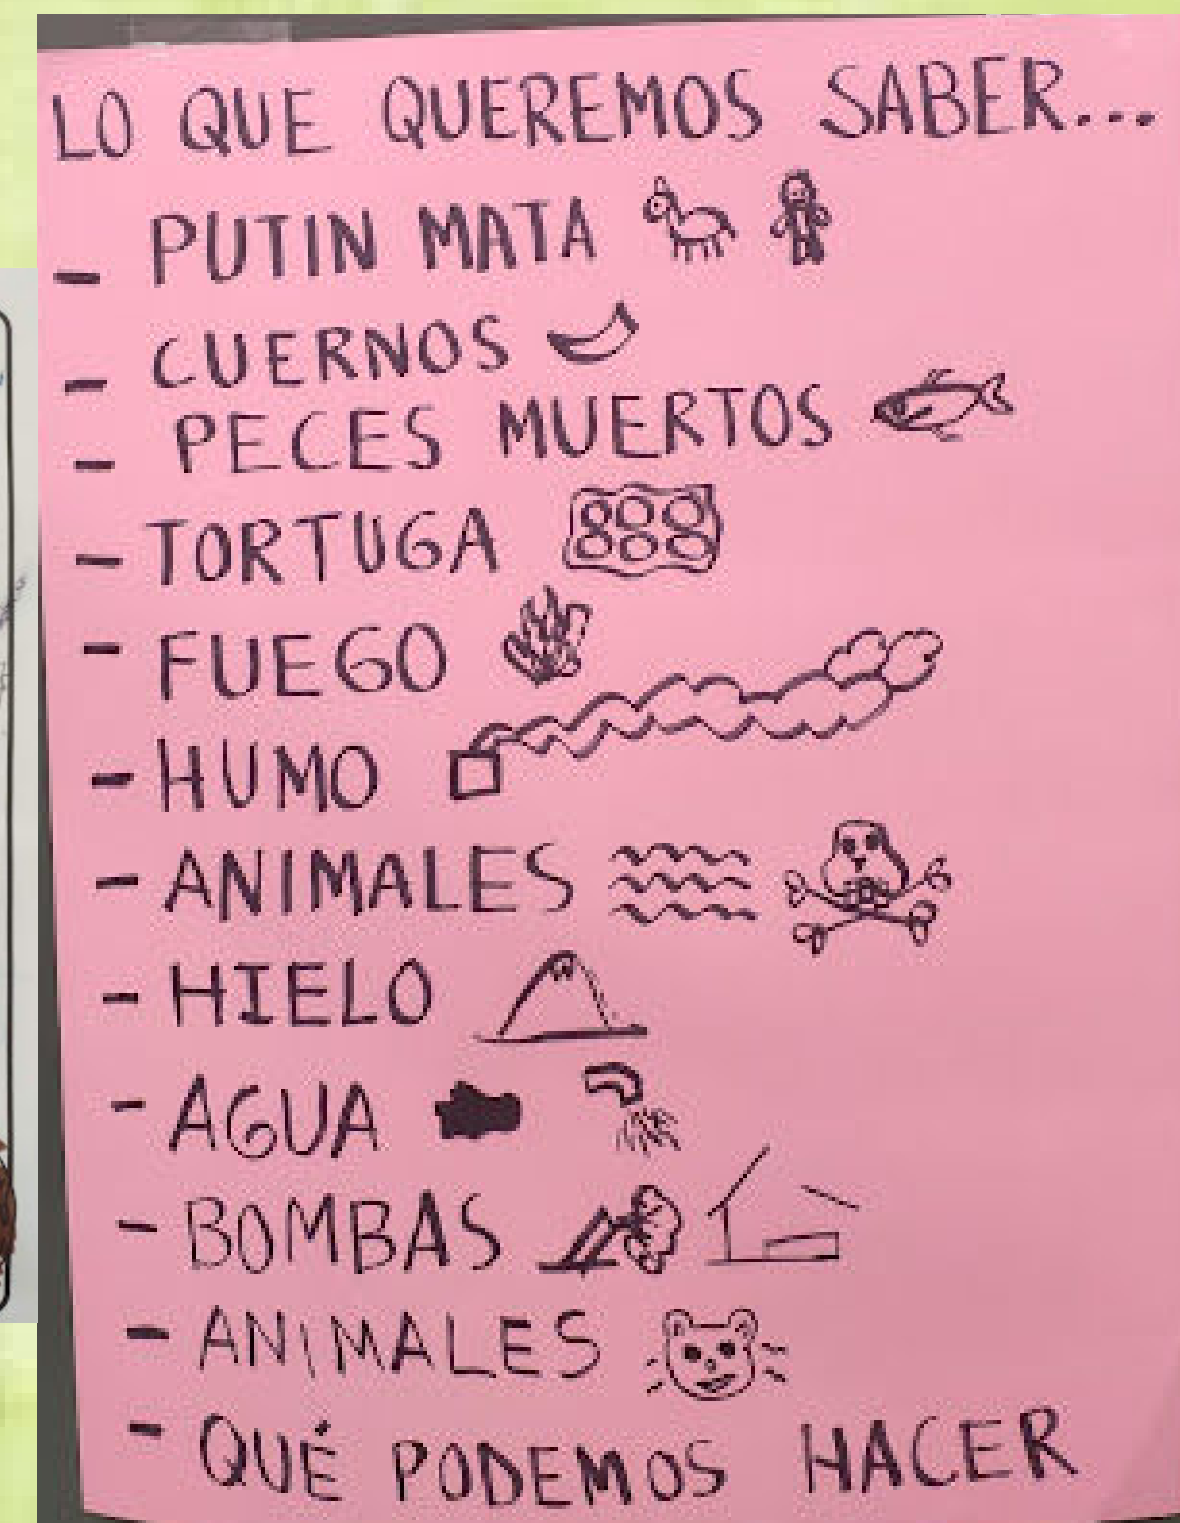 LO QUE QUEREMOS SABER...
- PUTIN MATA
- CUERNOS
- PECES MUERTOS
- TORTUGA
- FUEGO
- HUMO
- ANIMALES
- HIELO
- AGUA
- BOMBAS
- ANIMALES
- QUÉ PODEMOS HACER